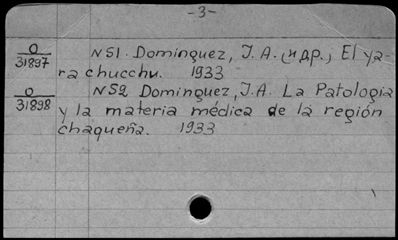 -3-
O
31897
N51. Dominguez, J. A. (и др.) El ya-
ra chucchu. 1933
O
31898
N52 Dominguez, J. A. La Patologia
y la materia médica de la región
chaqueña. 1933